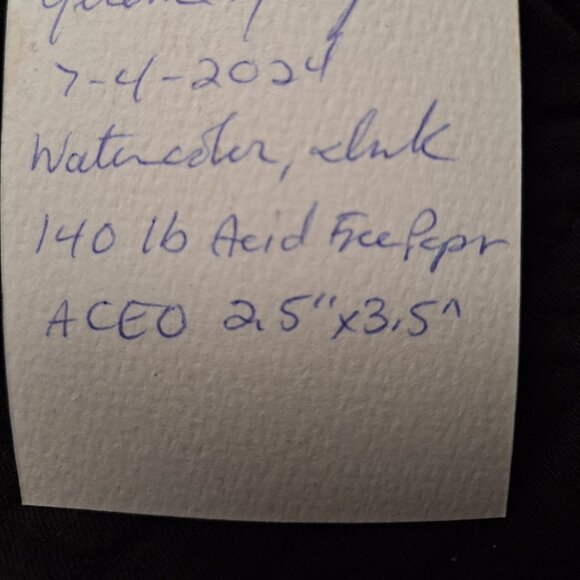 7-4-2024
Watercolor, Ink
140 lb Acid Free Papr
ACEO 2.5"x3.5^